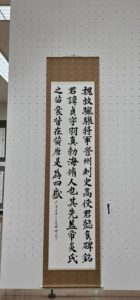 魏故驃騎將軍營州刺史高使君懿侯碑銘
君諱貞字羽真勃海脩人也其先蓋帝炎氏
之苗裔昔在黄唐是為四嶽